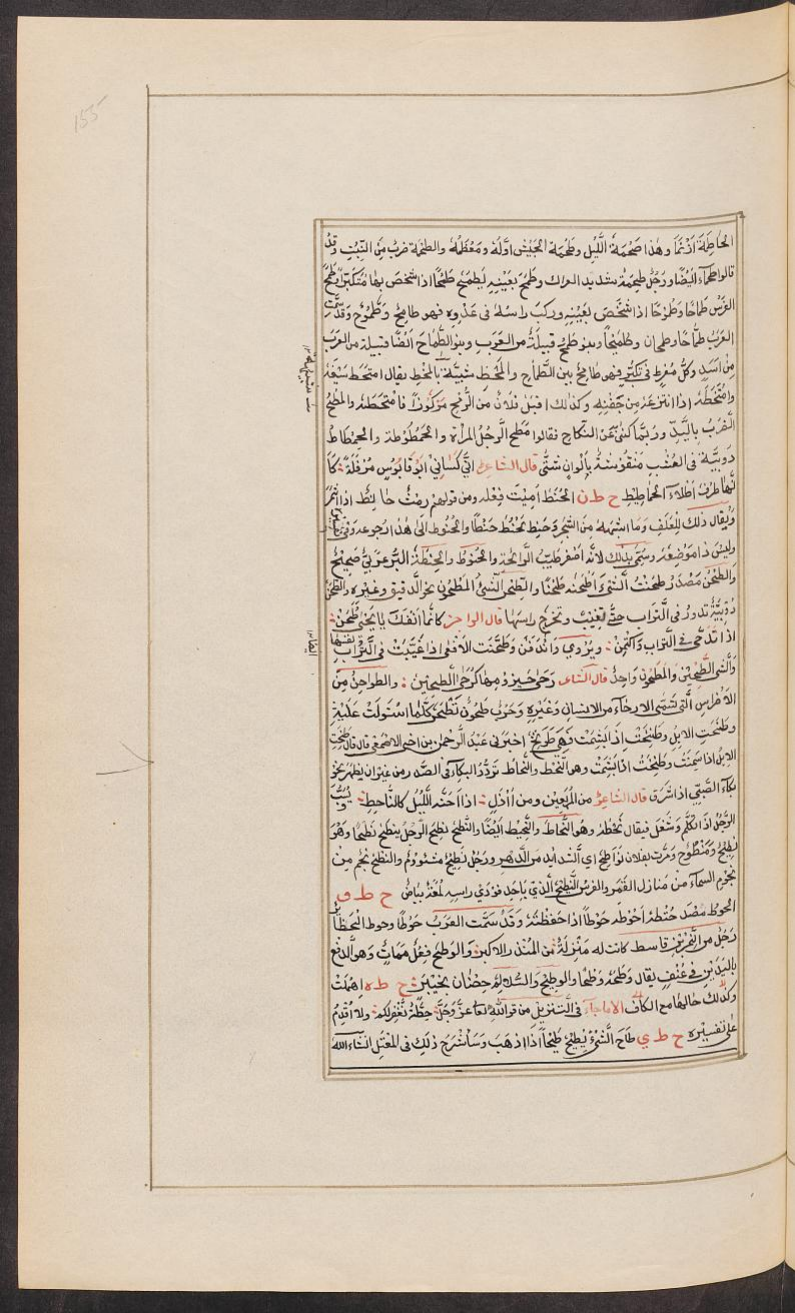 155
الحاطِمَةَ اَرْثَمًا وهٰذا صَحْمَةُ اللَّيْلِ وطَحْمَة الجَيْش اوّلُهُ ومُعْظَمُهُ والطَحْمَة ضربٌ مِنَ النَّبْتِ وقد
قالوا طحماء ايْضًا ورَجُل طحمَةٌ شديد العراك وطَمَحَ بعَيْنِهِ يَطْمَحُ طَمْحًا اذا شخصَ بها مُتَكبّرًا وطمح
الفَرَسُ طِمَاحًا وطُمُوحًا اذا شَخَصَ بعَيْنِهِ وركبَ راسَهُ فى عَدْوِهِ فهو طامِحٌ وطَمُوحٌ وقد سَمَّتِ
العرَبُ طمَّاحًا وطمحان وطُمَيْحًا وبنو طَمَحٍ قبيلَةٌ من العَرَبِ وبنو الطَّمَّاحِ ايْضًا قبيلة من العَرَب
مِنْ اَسَدٍ وكُلُّ مُفرِطٍ فى تكَبُّرٍ فهو طَامِحٌ بين الطِّمَاحِ والمَحْط شبيهٌ بالمَخْطِ يقال امتحَطَ سَيْفَهُ
وامْتَخَطَهُ اذا انتزعَهُ من جَفْنِهِ وكذلك اقبَلَ فلانٌ من الرُّمْحِ مَرْكُوزًا فامْتَحَطَهُ والمَطْحُ
الضَربُ باليَدِ ورُبَّما كُنِىَ عَنِ النكاحِ فقالوا مَطَحَ الرجُلُ المرْاَة والحُمطُوطة والحِمْطَاط
دُوَيْبَّة فى العُشْب مَنْقُوشَةٌ بِاَلْوانٍ شتَّى قال الشاعر انّى كسَانِىْ ابُو قابُوسَ مُرَفَّلَةً كأ
نَّهَا ظَرْف اَطْلَاءِ الحَمَاطِيْطِ ح ط ن الحَنْط اُمِيْتَ فِعْله ومن قولهم رِمْثٌ حَانِط اذا اثْمَرَ
ويقال ذلك للغَلَفِ وَما اشبهه مِنَ الشجَرِ وَحَنِطَ يَحْنَطُ حَنْطًا والحُنُوط الى هٰذا رجوعه وفى
وليسَ ذا مَوْضِعَهُ وسُمّى بذلك لانَّه اصْفَر طيّبُ الرَّائِحَة والحَنُوط والحِنطَة البُرُّ عَرَبِيٌّ صَحِيْحٌ
والطَّحْنُ مَصْدَر طَحَنْتُ الشّئَ اَطْحَنُه طَحْنًا والطِّحْن الشئُ المَطْحُون نحو الدَّقيق وغَيْرِه والطُحَنُ
دُوَيْبَّةٌ تدور فى التُّراب حتّى تَغِيْبَ وتُخْرِج راسَهَا قال الراجز كأنّما انفُكَ يا يَحْيٰى طُحَنْ
اذا تدَحّى فى التُّراب واكْتَمَنْ ويُرْوى وَانْدَفَنْ وطَحَنَت الاَفْعٰى اذا غَيَّبَتْ نفسها فى التُّراب
والشئ الطَحِيْن والمَطْحُون واحِدٌ قال الشاعر رَحىٰ حَيْزُومها كرَحَى الطحين والطواحِنُ مِنَ
الاَضْراسِ الَّتى تُسَمَّى الارحاءَ من الانسان وغَيْرِهِ وحَرْبٌ طَحُوْن تَطْحَنُ كُلَّما استَولَتْ عَلَيْهِ
وطَنِحَتِ الابِلُ وطَنِخَتْ اذا بَشِمَتْ فَهِىَ طَوانِحُ اخبرنى عَبْدُ الرَّحمٰن بن اخى الاصْمَعِى قال قال طَنِحَتِ
الاِبلُ اذا سَمِنَتْ وطَنِخَتْ اذا بَشِمَتْ وهوالنَّحْط والنُّحاط تَرَدُّدُ البكآءِ فى الصَّدْر من غيْر ان يظهرَ نحْوَ
بكآء الصَّبِىّ اذا شَرِقَ قال الشاعر من المُرْبَعِيْن ومن اَأْزَلٍ اذا اجَنَّهُ اللَّيْلُ كالنَّاحِطِ يُسَبُّ
الرَّجُلُ اذا تكَلَّمَ وَسَعَلَ فيقال نَحْطَةً وهو النُّحَاطُ والنَّحِيْط ايْضًا والنَّطْحُ نطَحَ الرَّجُلَ ينطَحُ نَطْحًا وهُوَ
نَطِيْحٌ ومَنْطُوحٌ ومَرَّت بفلانٍ نَوَاطِحُ اى الشدايد من الَّدهْرِ ورَجُل نَطِيْحٌ مَشْئُوْمٌ والنطْحُ نجم مِنْ
نجُوم السمآء من مَنازِل القَمَر والفرسُ النَّطِيْحُ الَّذى يَاْخُذ فَوْدَى راسِهِ لُمْعَة بياضٌ ح ط و
الحوطُ مصدر حُطْتُه اَحُوْطُه حَوْطًا اذا حَفِظْتَهُ وقد سمَّتِ العَرَبُ حَوْطًا وحوط الحَظَائر
رَجُلٌ من النَّمِرِ بْنِ قاسط كانت له مَنْزِلَةٌ مِنَ المُنْذِر الاكبر والوَطْحُ فِعْلٌ مَمَاتٌ وهو الدفع
باليَدَيْنِ فى عُنْفٍ يقال وَطَحَهُ وَطْحًا والوطِيْحُ والسُّلَالِمُ حِصْنَان بخَيْبَرَ ح ط ه اُهْمِلَتْ
وكذلك حالها مع الكاف الّا ما جآء فى التَّنزيل من قوله تعا عزَّ وَجَلَّ حِطَّةٌ نَغْفِرْ لَكم ولا اُقْدِمُ
على تفسيره ح ط ي طَاحَ الشّىءُ يَطِيْحُ طَيْحًا اذا ذهَبَ وَسَاَشْرَحُ ذلِكَ فى المُعْتَلّ انشاء اللّٰه